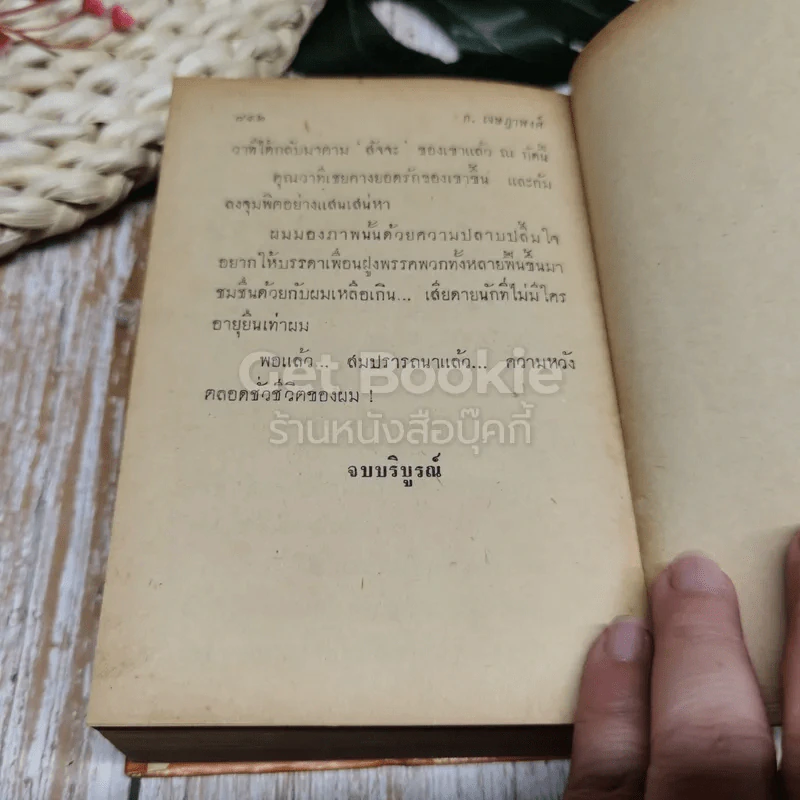 ๘๙๒ ก. เชษฐาพงศ์
วาที่ได้กลับมาตาม ‘สัจจะ’ ของเขาแล้ว ณ กัดนี้
คุณวาที่เชยคางยอดรักของเขาขึ้น และก้ม
ลงจุมพิตอย่างแสนเสน่หา
ผมมองภาพนั้นด้วยความปลาบปลื้มใจ
อยากให้บรรดาเพื่อนฝูงพรรคพวกทั้งหลายฟื้นขึ้นมา
ชมชื่นด้วยกับผมเหลือเกิน... เสียดายนักที่ไม่มีใคร
อายุยืนเท่าผม
พอแล้ว... สมปรารถนาแล้ว... ความหวัง
ตลอดชั่วชีวิตของผม !
จบบริบูรณ์
Get Bookie
ร้านหนังสือบุ๊คกี้